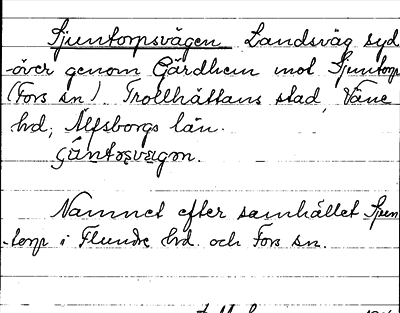 Sjuntorpsvägen Landsväg syd
-över genom Gärdhem mot Sjuntorp
(Fors sn) Trollhättans stad, Väne
hd, Älfsborgs län.
Namnet efter samhället Sjun
-torp i Flundre hd. och Fors sn.